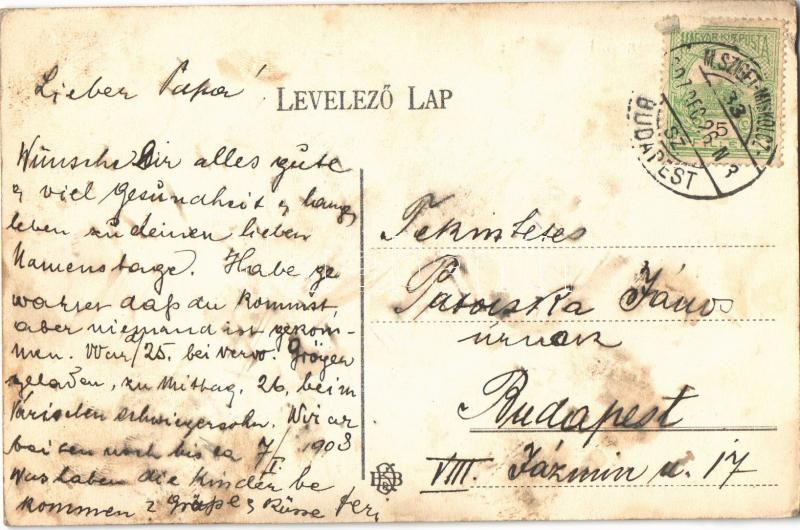 Lieber Papa!
LEVELEZŐ LAP
MAGYAR KIR. POSTA
M.SZIGET-MISKOLCZ
33
907 DEC 26 N 3
SZ
BUDAPEST
5
Wünsche Dir alles gute
u viel Gesundheit u langes
leben zu deinen lieben
Namenstage. Habe ge
wartet daß du kommst,
aber niemand ist gekom-
men. War /25. bei
geladen, zu Mittag, 26. beim
schwiegersohn.
noch bis ca 7/I 1908
Was haben die Kinder be
kommen? Grüße u Küsse
Tekintetes
János
úrnak
Budapest
VIII. Jázmin u. 17